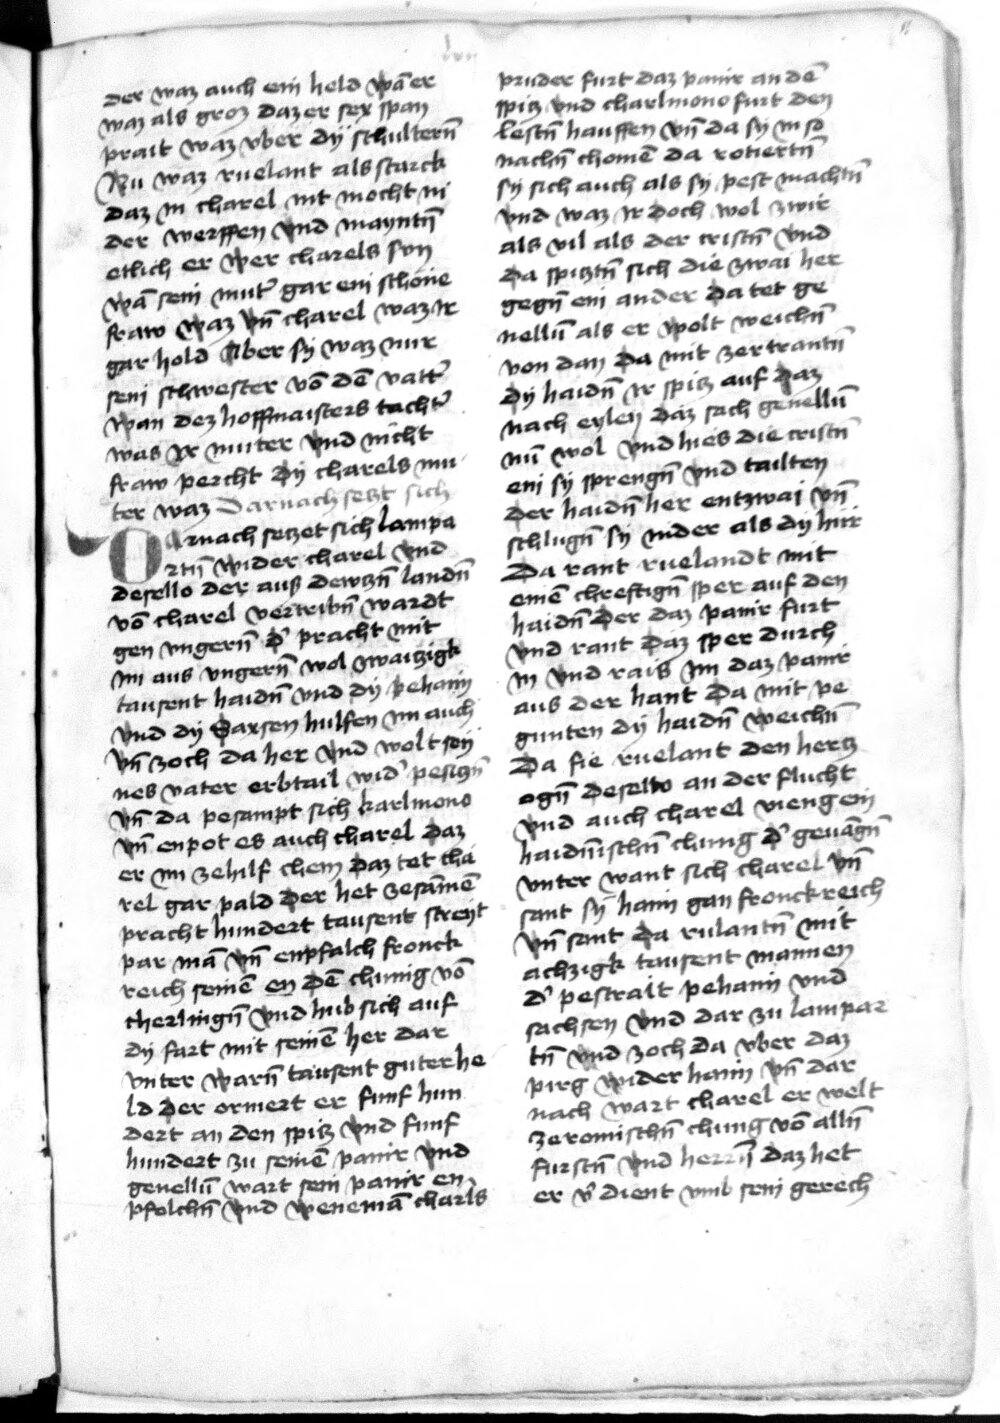 der waz auch ein held wā er
waz als groz daz er sex span
prait waz vber dÿ schulternn̄
Nu waz ruelant als starck
daz in charel nit mocht ni
der werffen vnd mayntn̄
etlich er wer charels sun
wā sein mut̄ gar ein schone
fraw waz vn̄ charel waz ir
gar hold Aber sÿ waz nur
sein schwester vō dē vatt̄
wan dez hoffmaisters tacht̄
was ir muter vnd nicht
fraw percht dÿ charels mu
ter waz Darnach setzt sich
Darnach seczet sich lampa
rtn̄ wider charel vnd
desello der auß dewczn̄ landn̄
vō charel vertribn̄ wardt
gen vngern̄ d' pracht mit
im aus vngern̄ wol zwaiczigk
tausent haidn̄ vnd dÿ pehaim
vnd dÿ Saxsen hulfen im auch
vn̄ zoch da her vnd wolt sey
nes vater erbtail wid' pesiczn̄
vn̄ da pesampt sich karlmono
vn̄ enpot es auch charel daz
er im zehilf chem daz tet cha
rel gar pald der het zesāmē
pracht hundert tausent streyt
par mā vn̄ enpfalch fronck
reich seinē en dē chunig vō
therlingn̄ vnd hub sich auf
dÿ fart mit seinē her dar
vnter warn̄ tausent guter he
ld der ormert er funf hun
dert an den spitz vnd funf
hundert zu seinē panir vnd
genellū wart sein panir en
pfolchn̄ vnd wenemā charls
pruder furt daz panir an dē
spitz vnd charlmono furt den
lestn̄ hauffen vn̄ da sÿ in so
nachn̄ chomē da rotiertn̄
sÿ sich auch als sÿ pest machtn̄
vnd waz ir doch wol zwir
als vil als der cristn̄ vnd
da spitztn̄ sich die zwai her
gegn̄ ein ander da tet ge
nellū als er wolt weichn̄
von dan da mit zertrantn̄
dÿ haidn̄ ir spitz auf daz
nach eylen daz sach genellū
nū wol vnd hies die cristn̄
ein sÿ sprengn̄ vnd tailten
der haidn̄ her entzwai vn̄
schlugn̄ sÿ nider als dÿ hur
Da rant ruelandt mit
einē chreftign̄ sper auf den
haidn̄ der daz panir furt
vnd rant daz sper durch
in vnd rais im daz panir
aus der hant da mit pe
gunten dÿ haidn̄ weichn̄
Da fie ruelant den hercz
ogn̄ desello an der flucht
vnd auch charel viengein
haidnischn̄ chunig d' geuāgn̄
vnter want sich charel vn̄
sant sÿ haim gan fronckreich
vn̄ sant da rulantn̄ mit
achzigk tausent mannen
d' pestralt pehaim vnd
sachsen vnd dar zu lampar
tn̄ vnd zoch da vber daz
pirg wider haim vn̄ dar
nach wart charel er welt
ze romischn̄ chung vō alln̄
furstn̄ vnd herrn̄ daz het
er v' dient vmb sein gerech